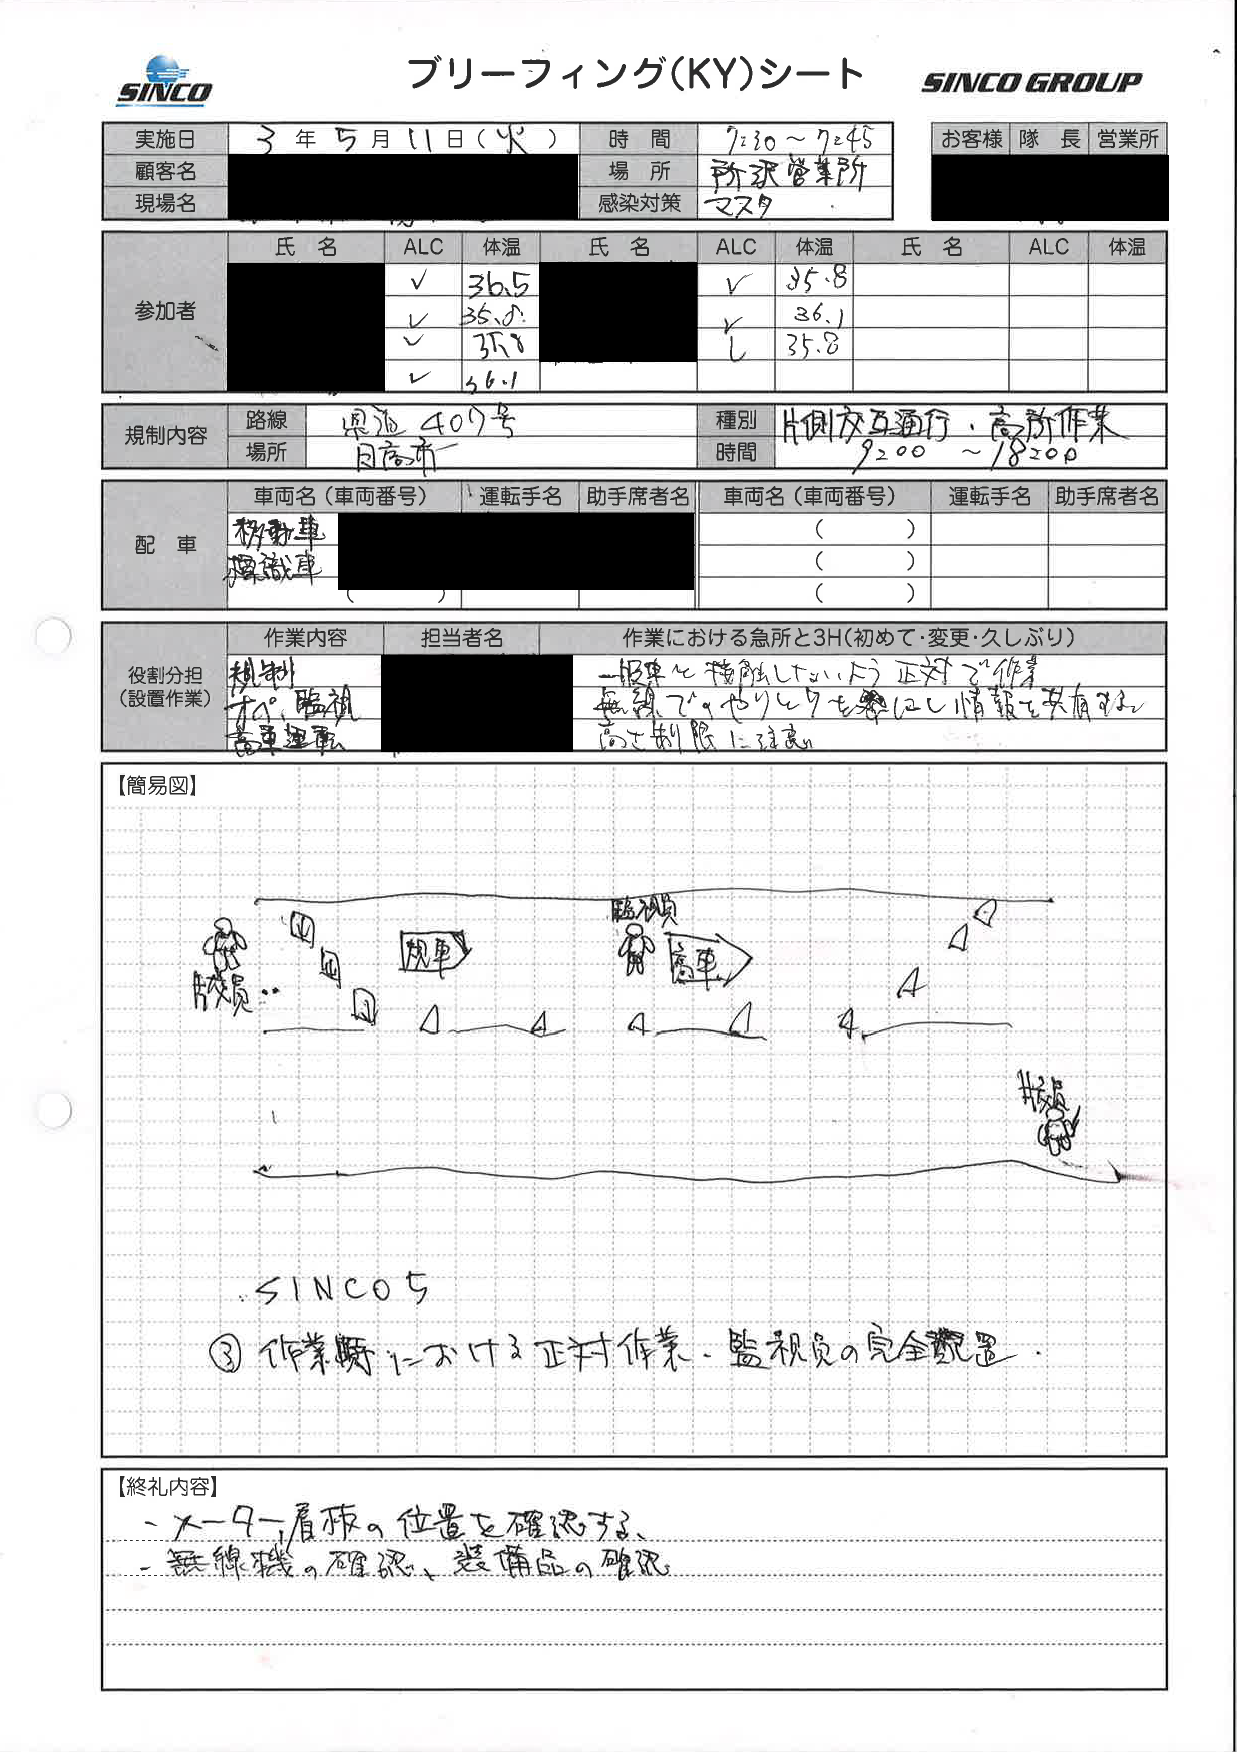 SINCO
ブリーフィング(KY)シート
SINCO GROUP
実施日 3年 5月 11日(火) 時間 7:30～7:45
お客様 隊長 営業所
顧客名 場所 所沢営業所
現場名 感染対策 マスク
参加者
氏名 ALC 体温 氏名 ALC 体温 氏名 ALC 体温
✓ 36.5 ✓ 35.8
✓ 35.8 ✓ 36.1
✓ 35.8 ✓ 35.8
✓ 36.1
規制内容
路線 県道407号 種別 片側交互通行・高所作業
場所 日高市 時間 9:00 ～18:00
配車
車両名(車両番号) 運転手名 助手席者名 車両名(車両番号) 運転手名 助手席者名
移動車 ( )
標識車 ( )
( ) ( )
役割分担
(設置作業)
作業内容 担当者名 作業における急所と3H(初めて・変更・久しぶり)
規制 一般車と接触しないよう正対で作業
オペ、監視 無線でのやりとりを密にし情報を共有する
高車運転 高さ制限に注意
【簡易図】
監視員
規車
高車
片交員
片交員
SINCO5
③ 作業時における正対作業、監視員の完全配置.
【終礼内容】
- メーター、看板の位置を確認する、
- 無線機の確認、装備品の確認